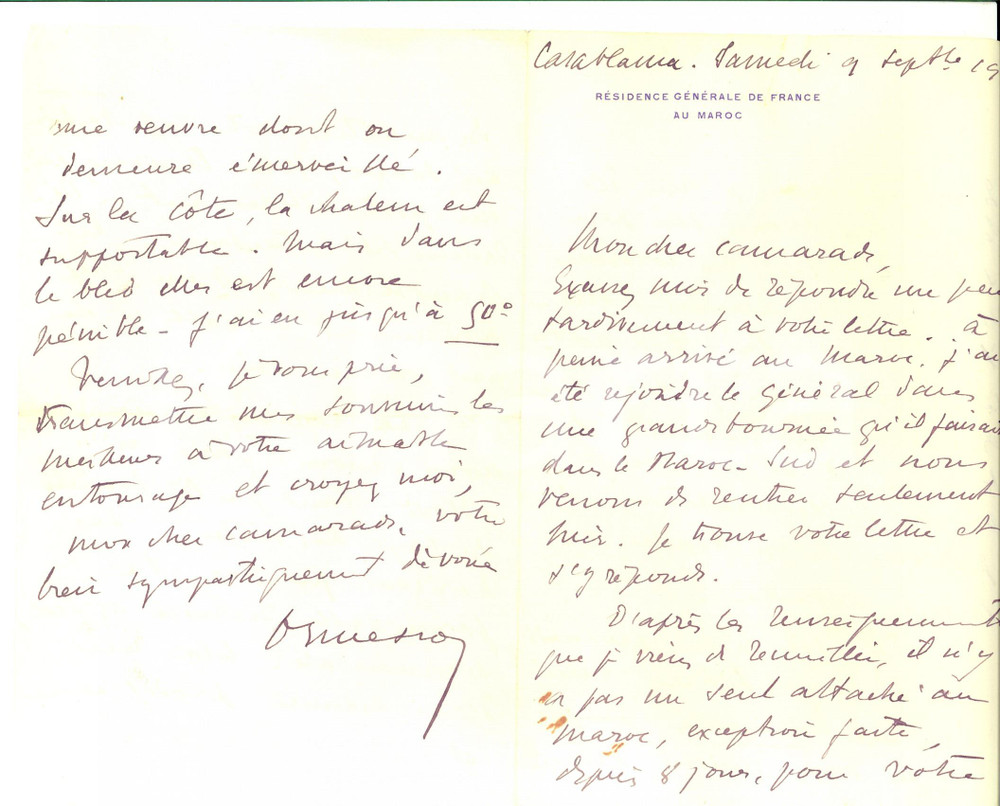 Casablanca. Samedi 9 septbre 19
RÉSIDENCE GÉNÉRALE DE FRANCE
AU MAROC
Mon cher camarade,
Excusez moi de répondre un peu
tardivement à votre lettre. à
peine arrivé au Maroc, j'ai
été rejoindre le Général dans
une grande tournée qu'il faisait
dans le Maroc-Sud et nous
venons de rentrer seulement
hier. Je trouve votre lettre et
j'y réponds.
D'après les renseignements
que je viens de recueillir, il n'y
a pas un seul attaché au
Maroc, exception faite,
depuis 8 jours, pour votre
une œuvre dont on
demeure émerveillé.
Sur la côte, la chaleur est
supportable. Mais dans
le bled elle est encore
pénible - J'ai eu jusqu'à 50°
Veuillez, je vous prie,
transmettre mes souvenirs les
meilleurs à votre aimable
entourage et croyez moi,
mon cher camarade, votre
bien sympathiquement dévoué